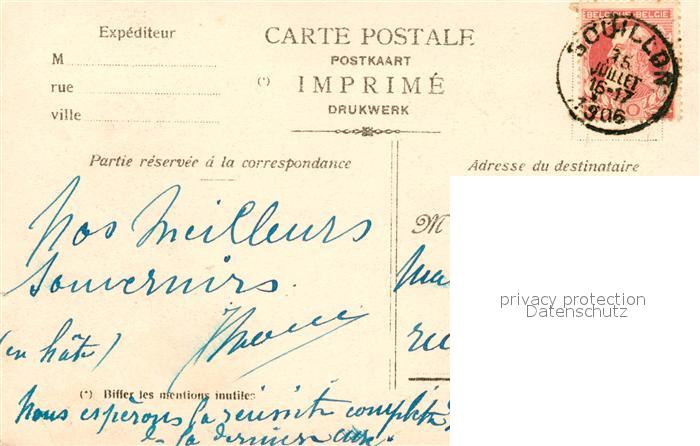 Expéditeur
M
rue
ville
CARTE POSTALE
POSTKAART
(*) IMPRIMÉ
DRUKWERK
BELGIQUE·BELGIE
GOUILLON
15
JUILLET
16-17
1906
Partie réservée à la correspondance
Nos Meilleurs
Souvenirs
(en hâte)
(*) Biffer les mentions inutiles
Nous espérons la réussite complète
la dernière
Adresse du destinataire
M
privacy protection
Datenschutz